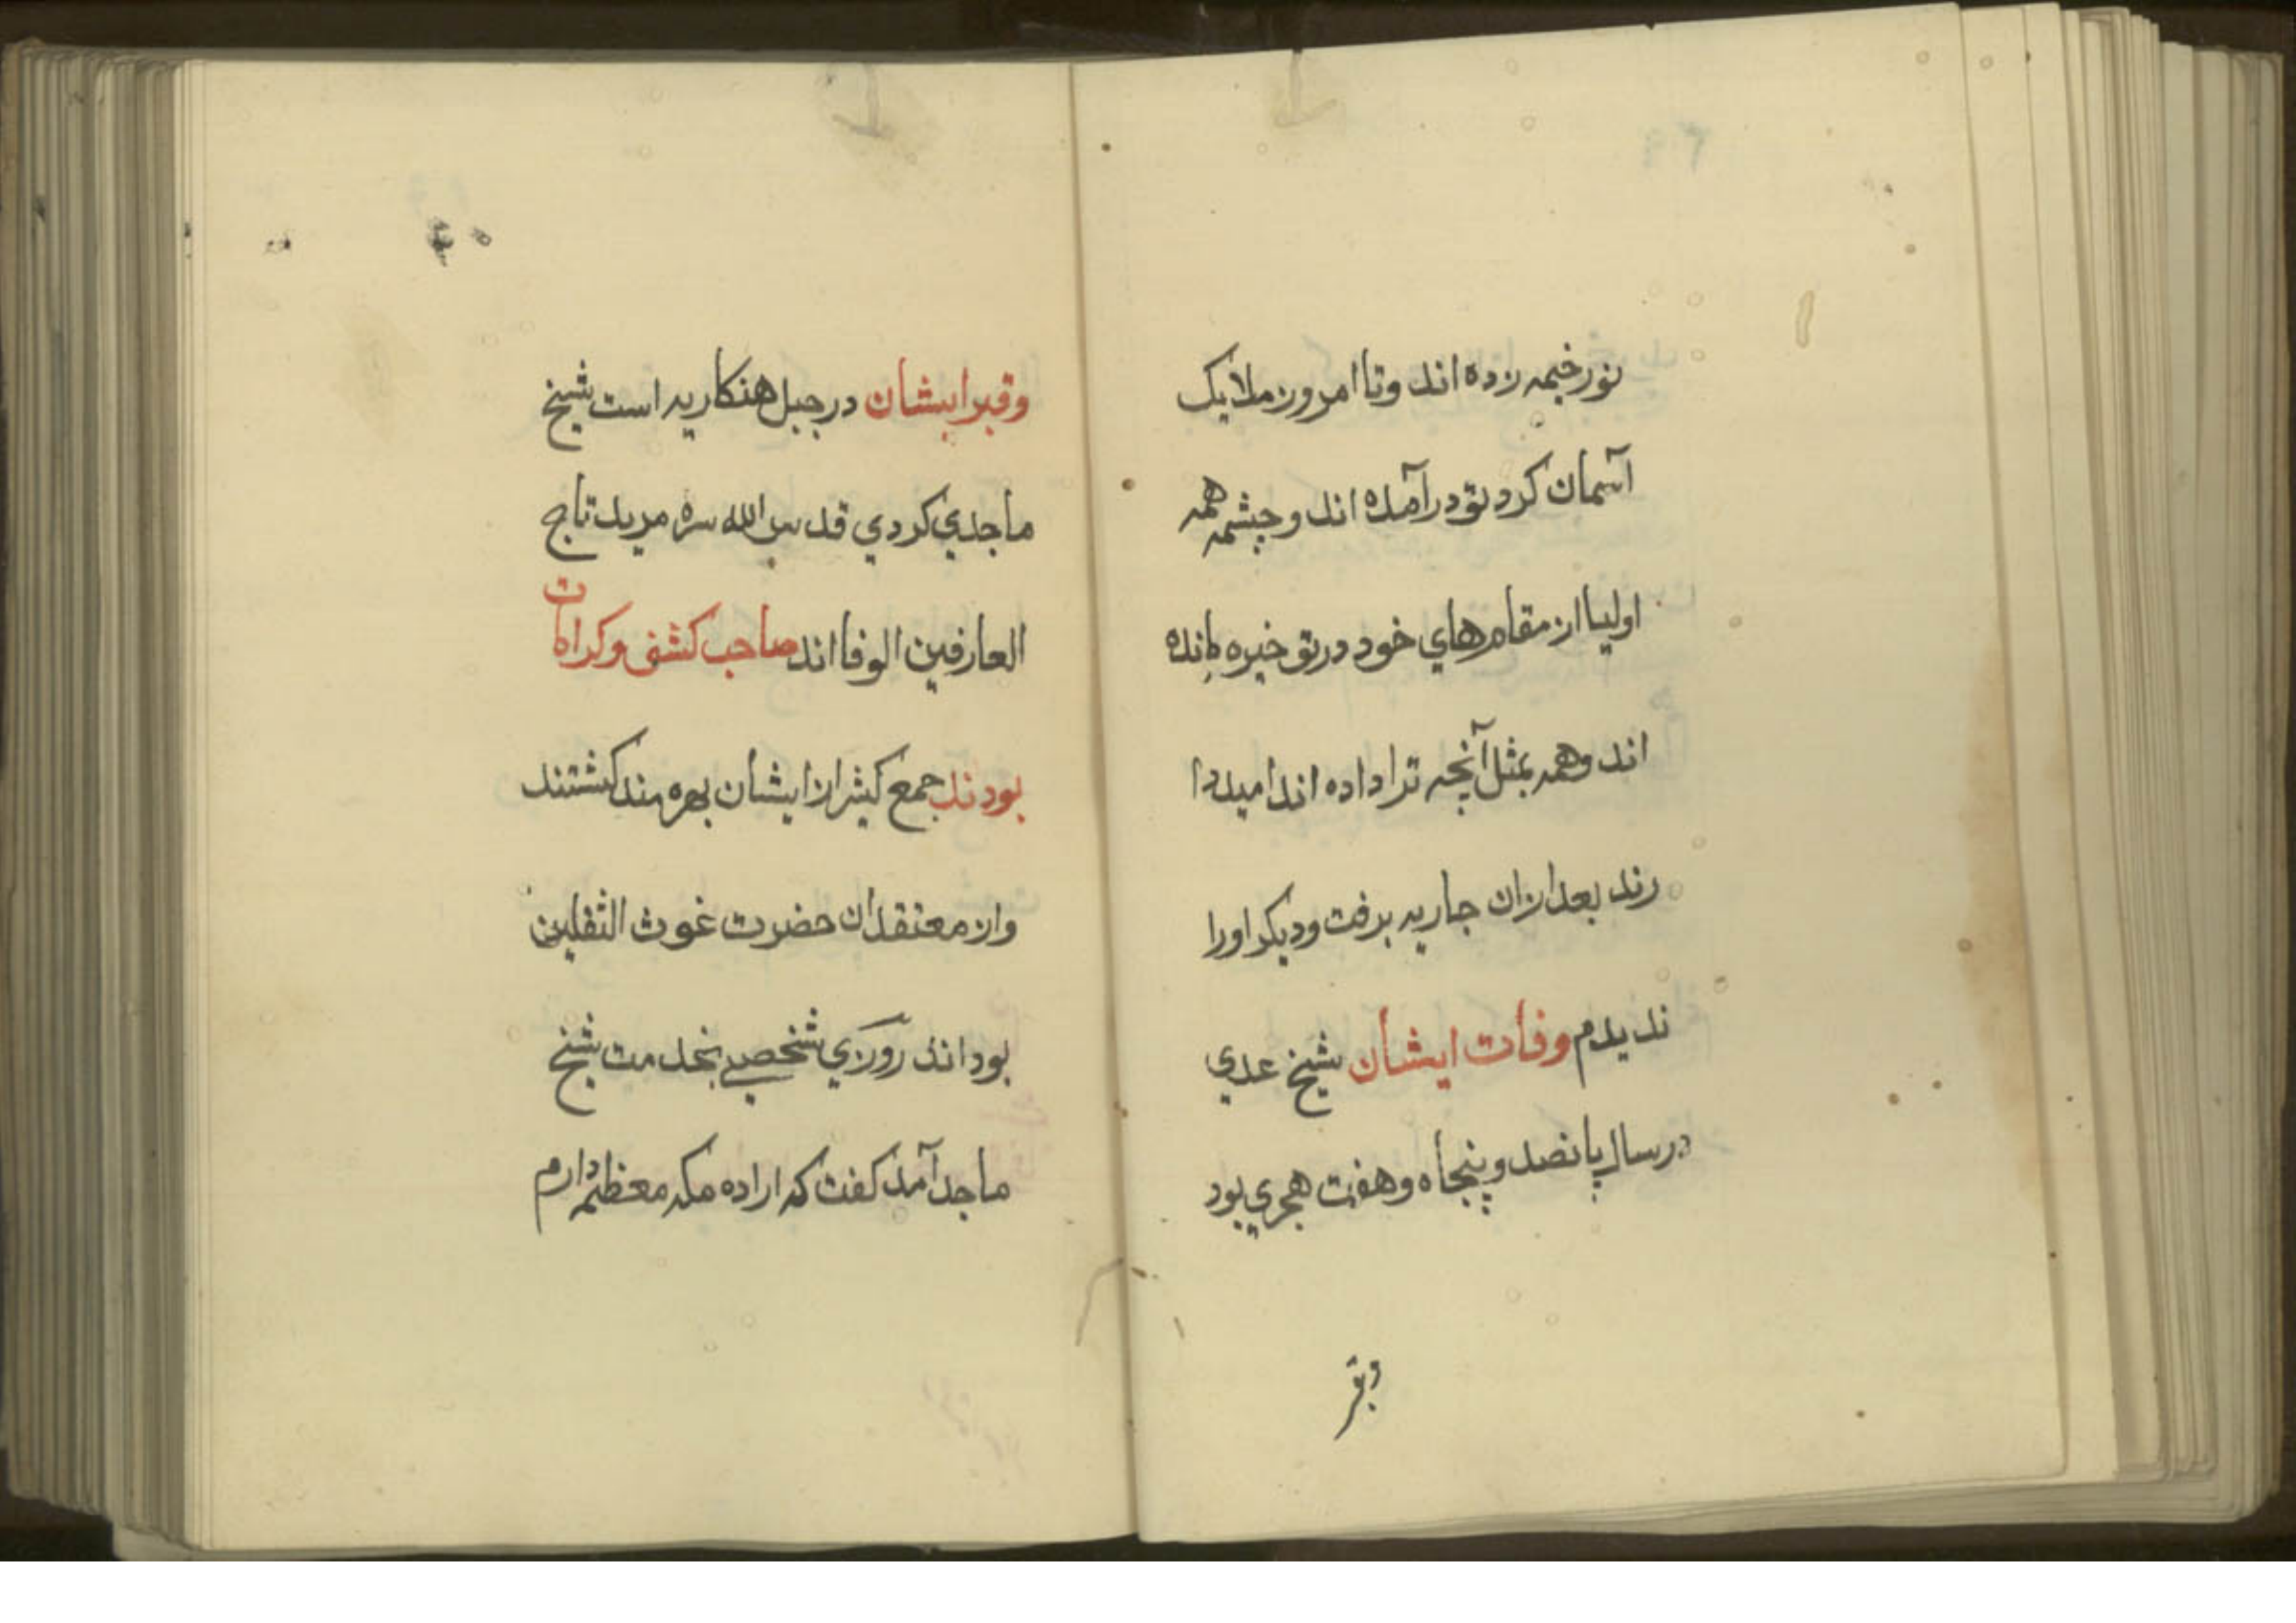 نور خیمه زده اند وتا امروز ملایک
آسمان کرد تو درآمده اند و چشمه همه
اولیا از مقامرهاي خود در تو خیره مانده
اند وهمه بمثل آنچه ترا داده اند امید دا
رند بعد ازان جاریه برفت ودیکر اورا
ندیدم وفات ایشان شیخ عدي
درسال پانصد و پنجاه وهفت هجري بود
وقبر
وقبر ایشان در جبل هنکاریه است شیخ
ماجدي کردي قدس الله سره مرید تاج
العارفین الوفا اند صاحب کشف وکرامات
بودند جمع کثیر از ایشان بهره مند کشتند
واز معتقدان حضرت غوث الثقلین
بود اند روزي شخصے بخدمت شیخ
ماجد آمد کفت که اراده مکه معظمه دارم